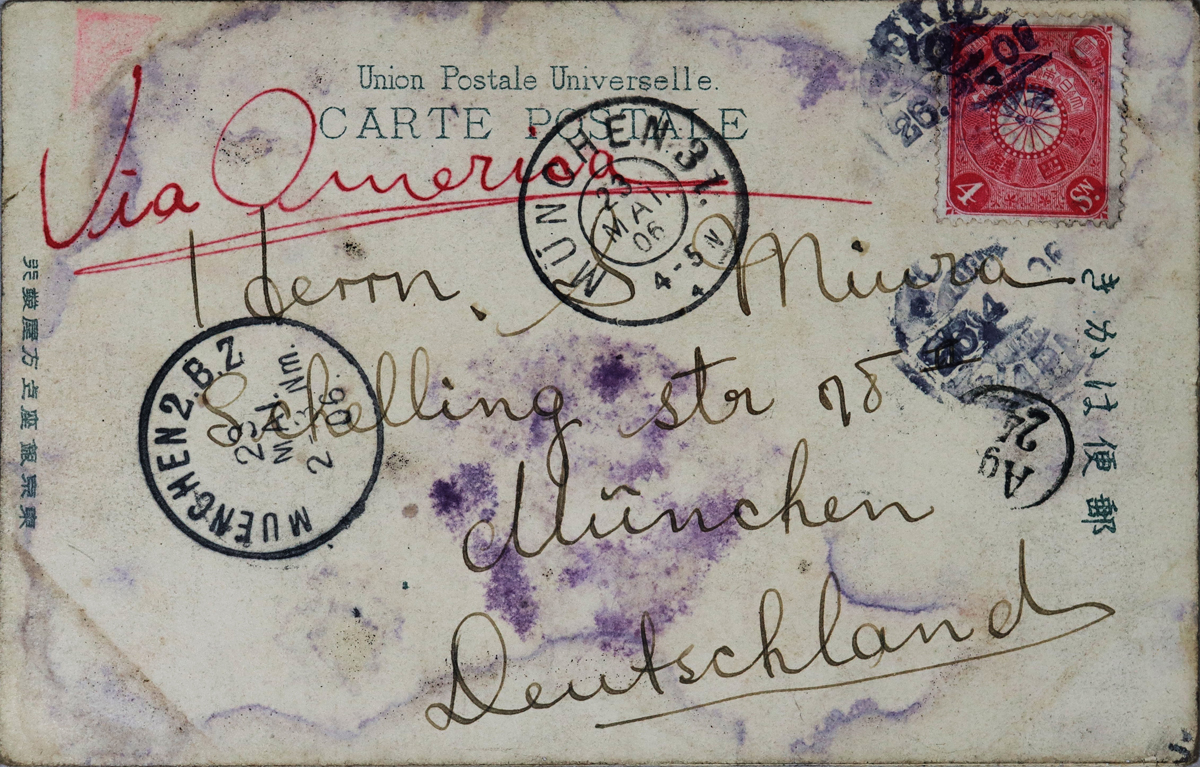 Union Postale Universelle.
CARTE POSTALE
Via America
MÜNCHEN 31.
MAI
06
4-5 N
4 Sn.
Herrn. S Miura
Schelling str 78 II
München
Deutschland
MUENCHEN 2.B.Z
29.
MAI.
2-3 Nm.
06.
Ag
24
郵便はかき
東京銀座上方屋發兌